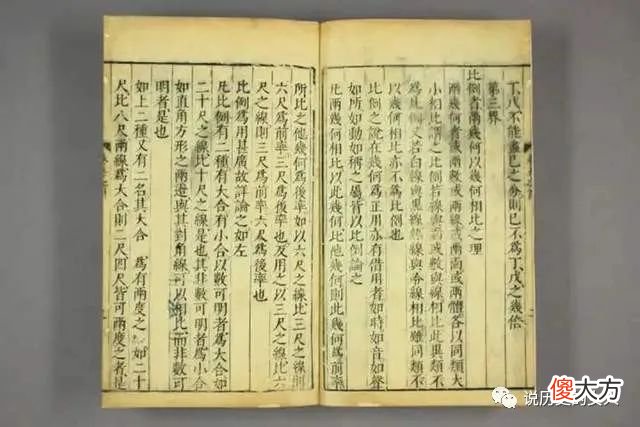 丁戊不能盡己之分則己不爲丁戊之幾倍
第三界
比例者兩幾何以幾何相比之理
兩幾何者或兩數或兩線或兩面或兩體各以同類大
小相比謂之比例若線與面或數與線相比此異類不
爲比例又若白線與黑線熱線與冷線相比雖同類不
以幾何相比亦不爲比例也
比例之說在幾何爲正用亦有借用者如時如音如聲
如所如動如稱之屬皆以比例論之
凡兩幾何相比以此幾何比他幾何則此幾何爲前率
所比之他幾何爲後率如以六尺之線比三尺之線則
六尺爲前率三尺爲後率也反用之以三尺之線比六
尺之線則三尺爲前率六尺爲後率也
比例爲用甚廣故詳論之如左
凡比例有二種有大合有小合以數可明者爲大合如
二十尺之線比十尺之線是也其非數可明者爲小合
如直角方形之兩邊與其對角線可以相比而非數可
明者是也
如上二種又有二名其大合 爲有兩度之 如二十
尺比八尺兩線爲大合則二尺四尺皆可兩度之者是
说历史的女人
傻大方